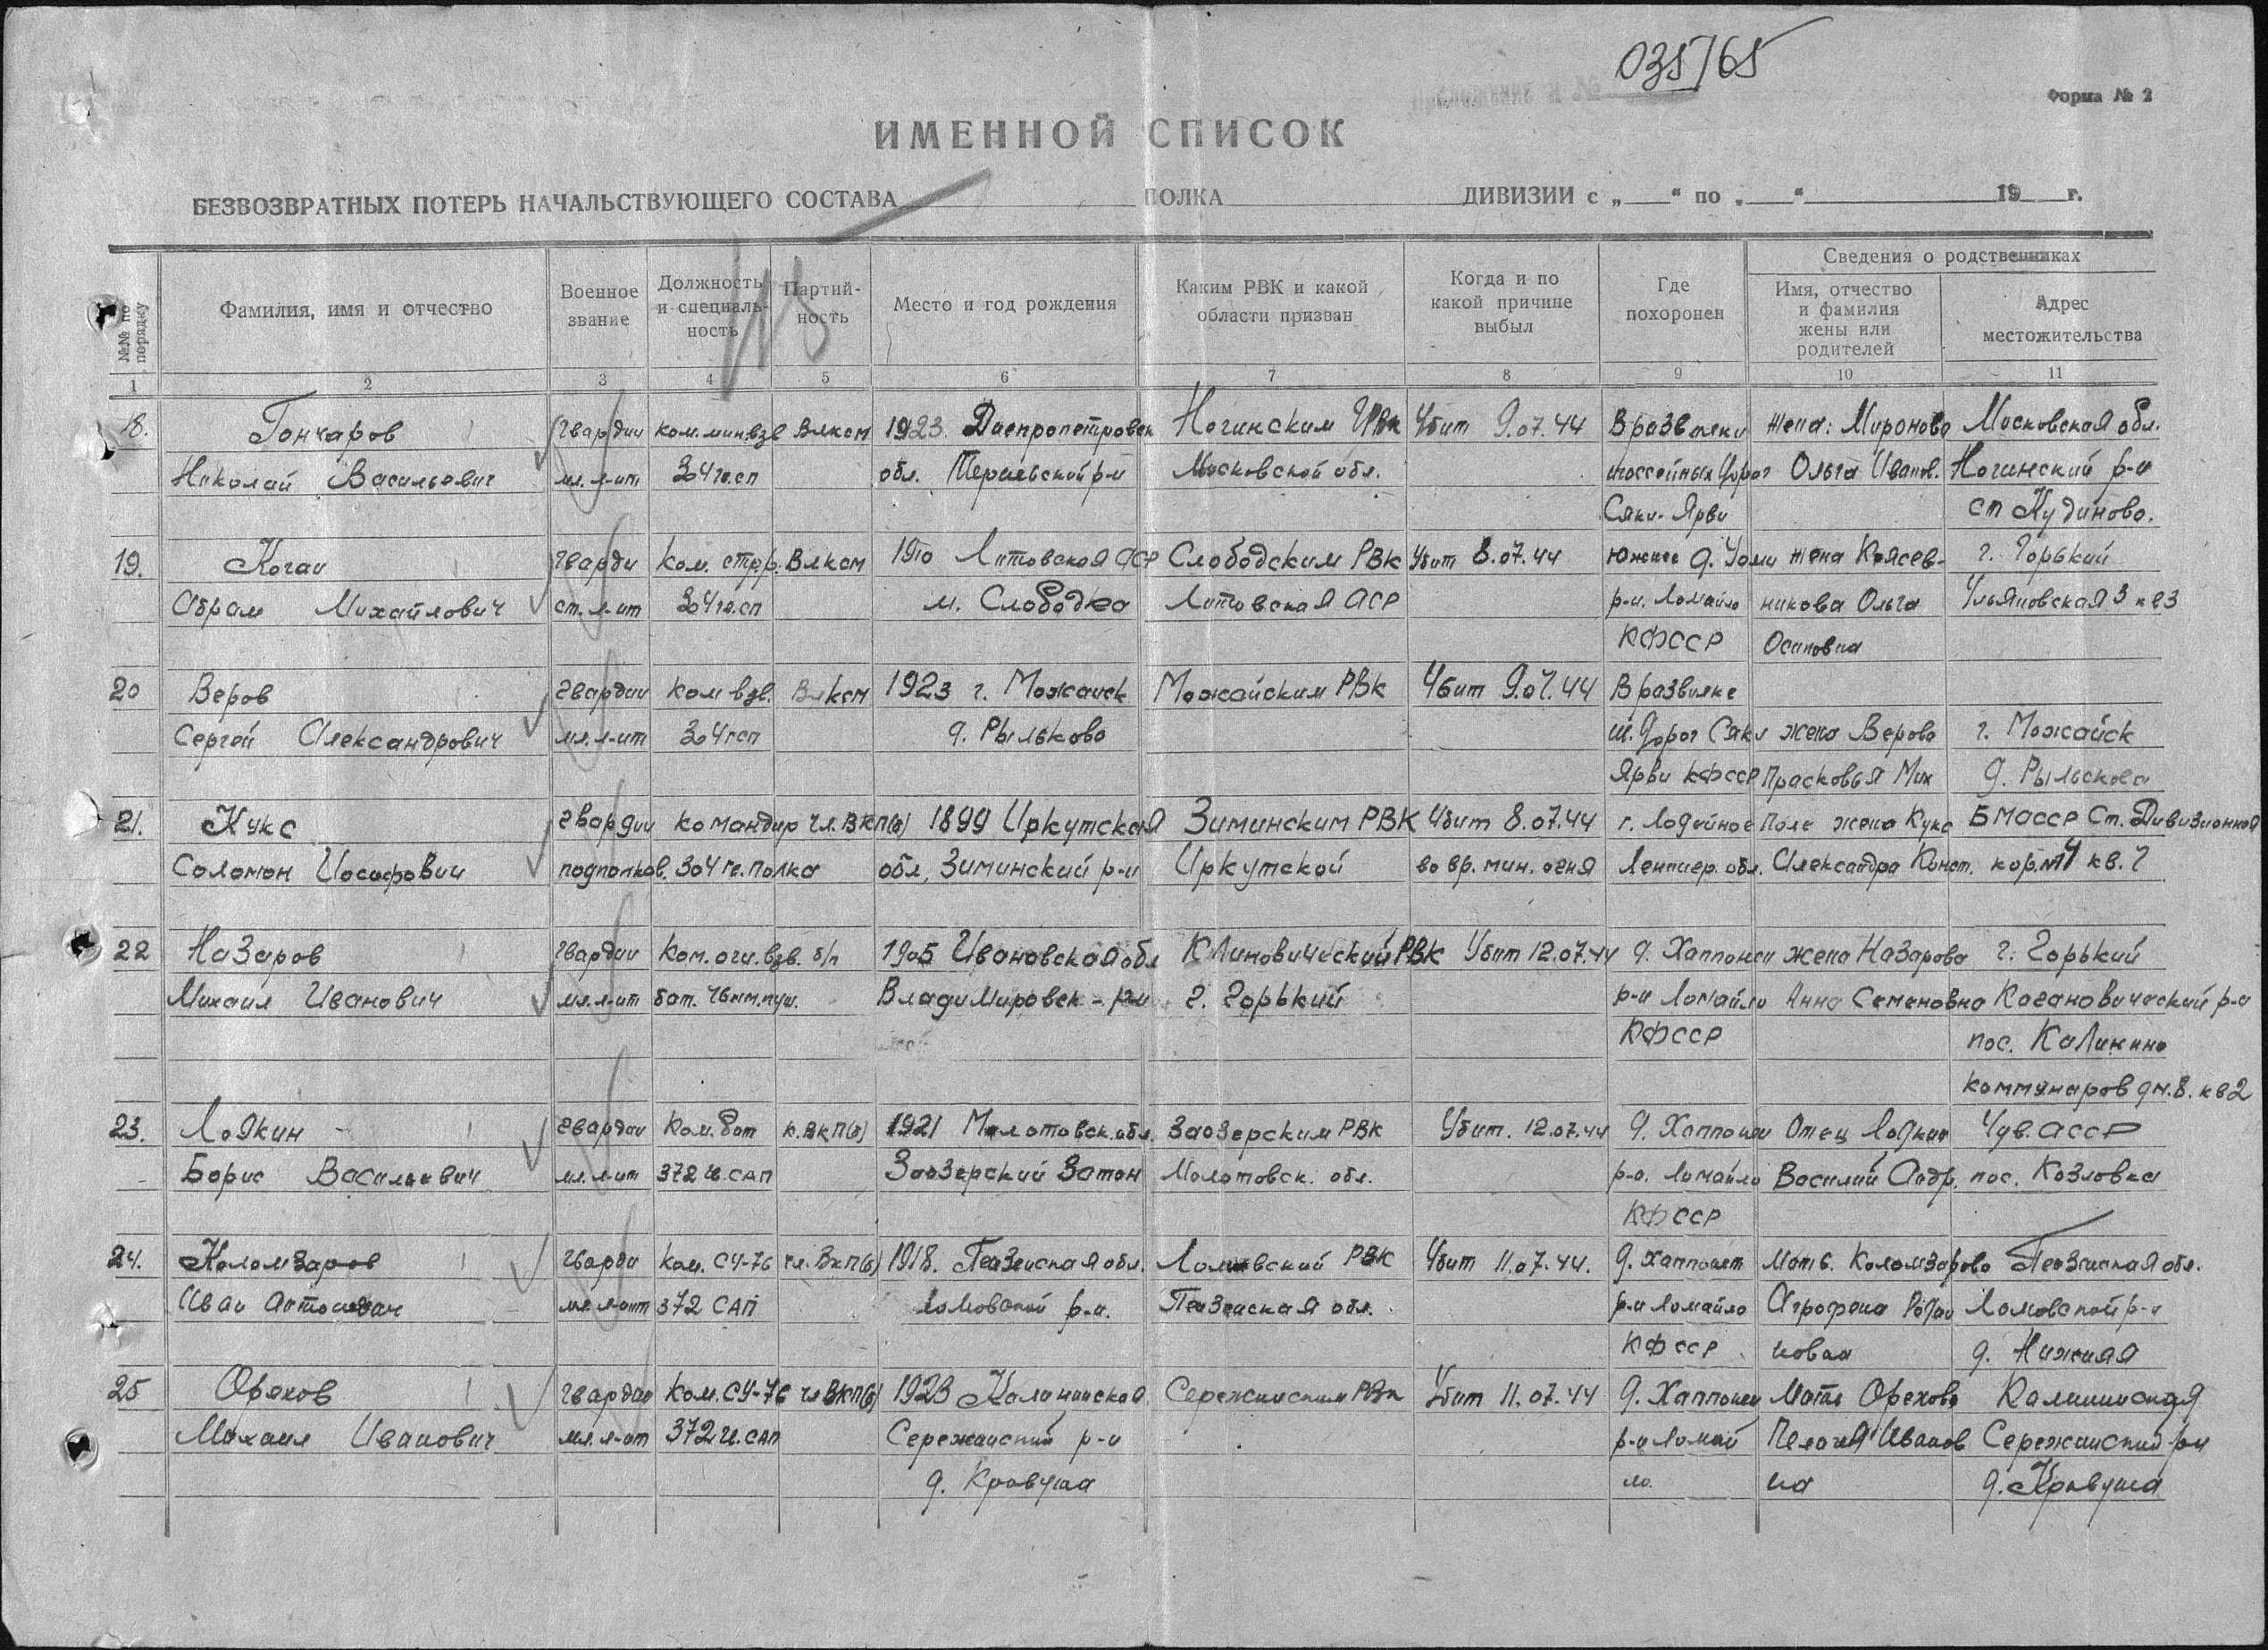 035765
Форма № 2
ИМЕННОЙ СПИСОК
БЕЗВОЗВРАТНЫХ ПОТЕРЬ НАЧАЛЬСТВУЮЩЕГО СОСТАВА ПОЛКА ДИВИЗИИ с „ “ по „ “ 19 г.
№№ по порядку
Фамилия, имя и отчество
Военное звание
Должность и специальность
Партийность
Место и год рождения
Каким РВК и какой области призван
Когда и по какой причине выбыл
Где похоронен
Сведения о родственниках
Имя, отчество и фамилия жены или родителей
Адрес местожительства
1 2 3 4 5 6 7 8 9 10 11
18. Гончаров гвардии ком. мин. взв ВЛКСМ 1923 Днепропетровск Ногинским РВК Убит 9.07.44 В развилки жена: Миронова Московская обл.
Николай Васильевич мл. л-нт 304 гв.сп обл. р-н Московской обл. шоссейных дорог Ольга Иванов. Ногинский р-н
Сяки-Ярви ст Кудиново.
19. Коган гварди ком. стр.р. ВЛКСМ 1910 Литовская ССР Слободским РВК Убит 8.07.44 южнее д. жена г. Горький
Абрам Михайлович ст. л-нт 304 гв.сп м. Слободка Литовская АСР р-н. Ломайло никова Ольга Ульяновская 3 кв3
КФССР Осиповна
20 Веров гвардии ком взв. ВЛКСМ 1923 г. Можайск Можайским РВК Убит 9.07.44 В развилке
Сергей Александрович мл. л-нт 304 гсп д. Рыльково ш. дорог Сяки жена Верова г. Можайск
Ярви КФССР Прасковья Мих д. Рыльскова
21. Кукс гвардии командир чл. ВКП(б) 1899 Иркутская Зиминским РВК Убит 8.07.44 г. Лодейное Поле жена Кукс БМАССР Ст. Дивизионная
Соломон Иосифович подполков. 304 гв. полка обл. Зиминский р-н Иркутской во вр. мин. огня Ленингр. обл. Александра Конст. кв. 7
22 Назаров гвардии Ком. огн. взв. б/п 1905 Ивановская обл РВК Убит 12.07.44 д. Хаппонен жена Назарова г. Горький
Михаил Иванович мл. л-нт бат. пуш. Владимировск-р-н г. Горький р-н Ломайло Анна Семеновна Кагановический р-н
КФССР пос. Калинина
коммунаров дм. 8. кв2
23. Лодкин гвардии Ком. бат к. ВКП(б) 1921 Молотовск. обл. Заозерским РВК Убит. 12.07.44 д. Хаппонен Отец Лодкин Чув. АССР
Борис Васильевич мл. л-нт 372 гв. САП Заозерский Затон Молотовск. обл. р-н. Ломайло Василий Андр. пос. Козловка
КФССР
24. Коломзаров гварди Ком. СУ-76 чл. ВКП(б) 1918. Пензенская обл. РВК Убит 11.07.44. д. Мать. Коломзарова Пензенская обл.
Иван Антонович мл. л-нт 372 САП Ломовской р-н. Пензенская обл. р-н Ломайло Агрофена Родио Ломовской р-н
КФССР новна д. Нижняя
25 Орехов гвардии Ком. СУ-76 чл ВКП(б) 1923 Калининская Сережинским РВК Убит 11.07.44 д. Хаппонен Мать Орехова Калининская
Михаил Иванович мл. л-нт 372 гв. САП Сережинский р-н р-н Ломай Пелагея Иванов Сережинский р-н
д. ло. на д.